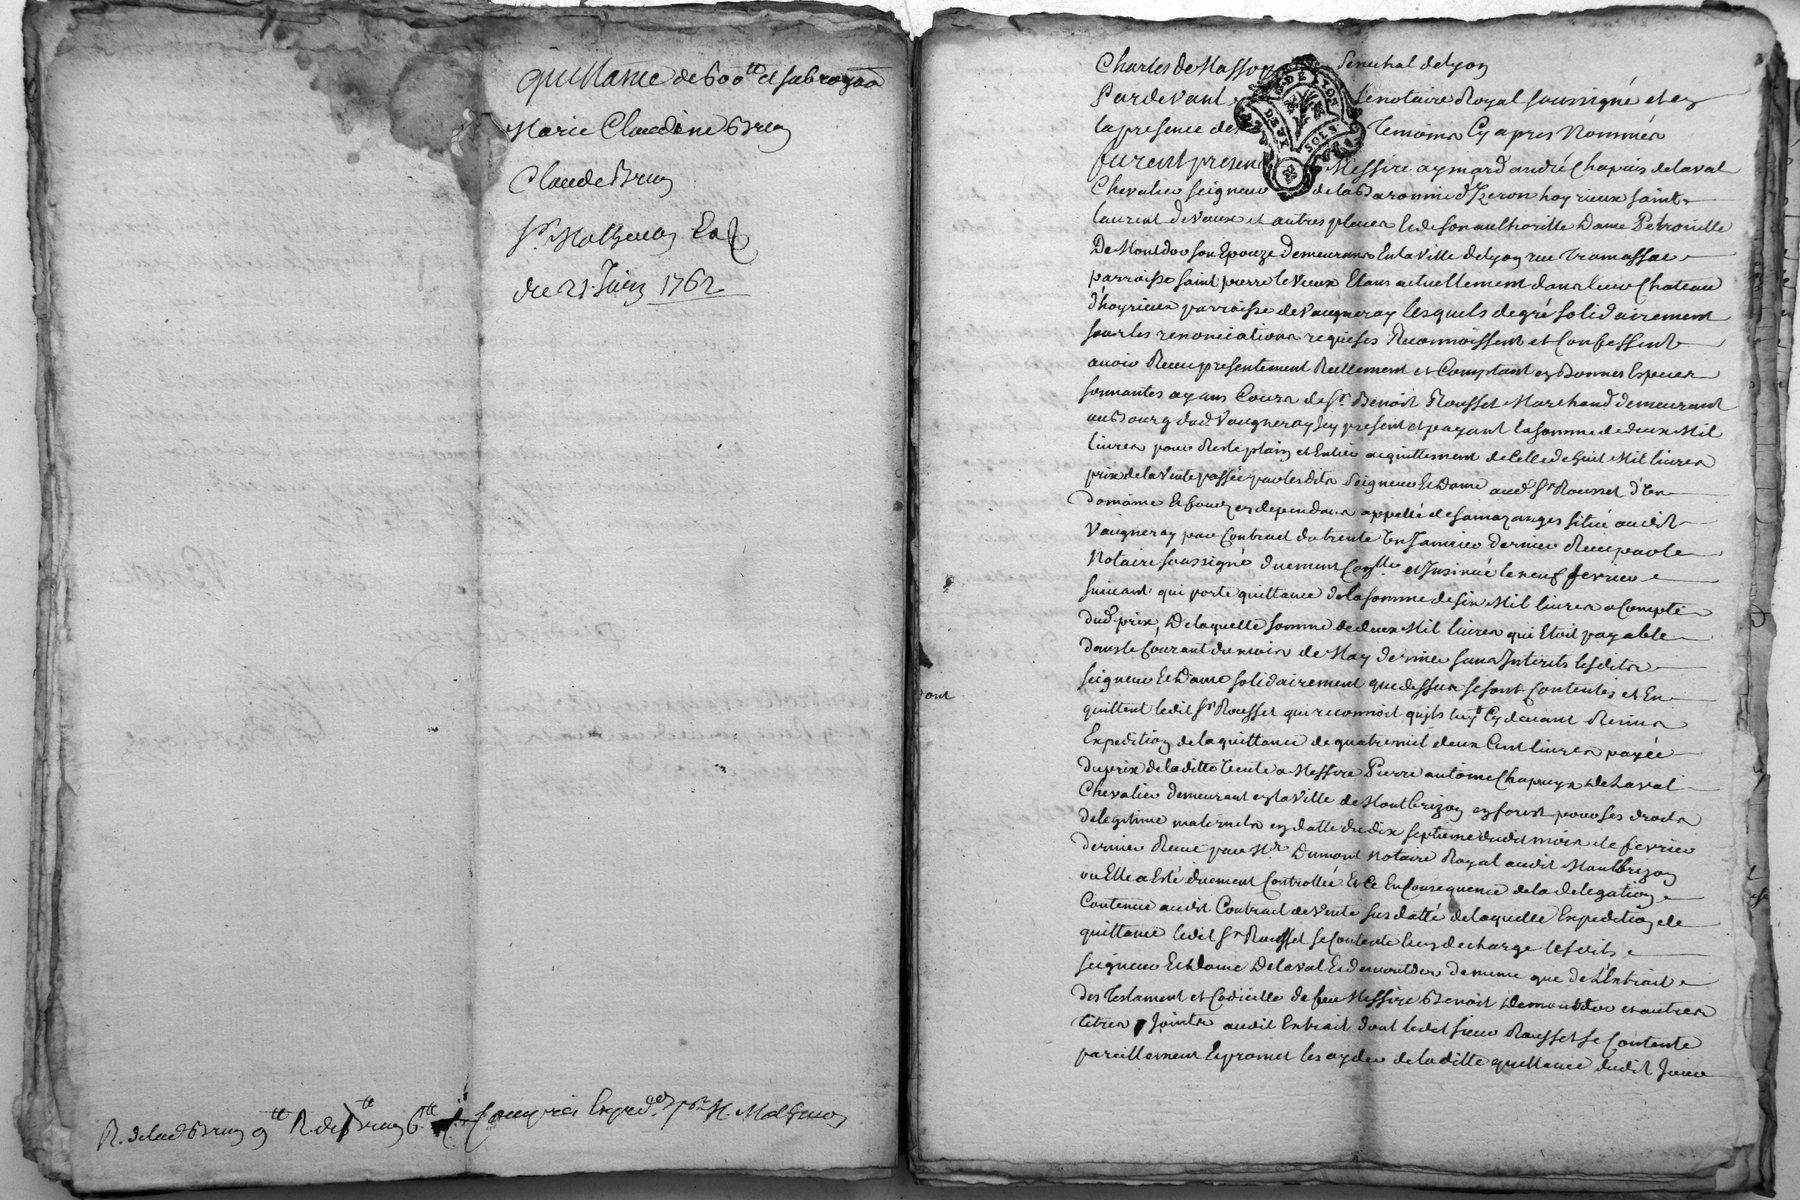 quittance de 600 tt et subrogaon
Marie Claudine Brun
Claude Brun
Sr Mathevon
du 21 Juin 1762
R. de lad Brun 9 tt R. de Brun 6 tt compris Expedon pr M. Mathevon
Charles de Masso Senechal de Lyon
Pardevant le notaire Royal soussigné et en
la presence des temoins Cy apres Nommés
furent present Messire aymard andré Chapuis de laval
Chevalier seigneur de la Baronnie d'Yzeron hoyrieux saint
laurent de Vaux et autres places et de son authoritte Dame Petronille
De Montdor son Epouze demeurans En la Ville de Lyon rue tramassac
parroisse saint pierre le vieux Etans actuellement dans leur Chateau
d'hoyrieux parroisse de Vaugneray lesquels de gré solidairement
sous les renonciations requises Reconnoissent et Confessent
avoir Receu presentement Reellement et Comptant en Bonnes Especes
sonnantes ayans Cours de Sr Benoit Rousset Marchand demeurant
au Bourg dud Vaugneray Icy present et payant la somme de deux Mil
livres pour Reste plain et Entier acquittement de Celle de huit Mil livres
prix de la Vente passée par lesdits Seigneur Et Dame aud. Sr Rousset d'Un
domaine Et fonds en dependans appellé de situé audit
Vaugneray par Contract du trente Un Janvier dernier Receu par le
Notaire soussigné duement Conllé et Insinué le neuf fevrier
suivant qui porte quittance de la somme de six Mil livres a Compte
dud. prix, De laquelle somme de deux Mil livres qui Etoit payable
dans le Courant du mois de May dernier sans Interets lesdits
seigneur Et Dame solidairement que dessus se sont Contentés et En
quittent ledit Sr Rousset qui reconnoit qu'ils luy ont Cy devant Remis
Expedition de la quittance de quatre mil deux Cent livres payée
du prix de la ditte Vente a Messire Pierre antoine Chapuys De Laval
Chevalier demeurant en la Ville de Montbrizon en forest pour ses droits
de legitime maternels en datte du dix septieme dudit mois de fevrier
dernier Receue par Me Dumont Notaire Royal audit Montbrizon
ou Elle a Esté duement Controllée Et Ce En Consequence de la delegation
Contenue audit Contract de Vente sus datté de laquelle Expedition de
quittance ledit Sr Rousset se Contente En decharge lesdits
seigneur Et Dame De laval Et de montdor de meme que de l'Extrait
des Testament et Codicille de feu Messire Benoit De montdor et autres
titres Joints audit Extrait dont ledit sieur Rousset se Contente
pareillement Et promet les ayder de la ditte quittance dudit Jour